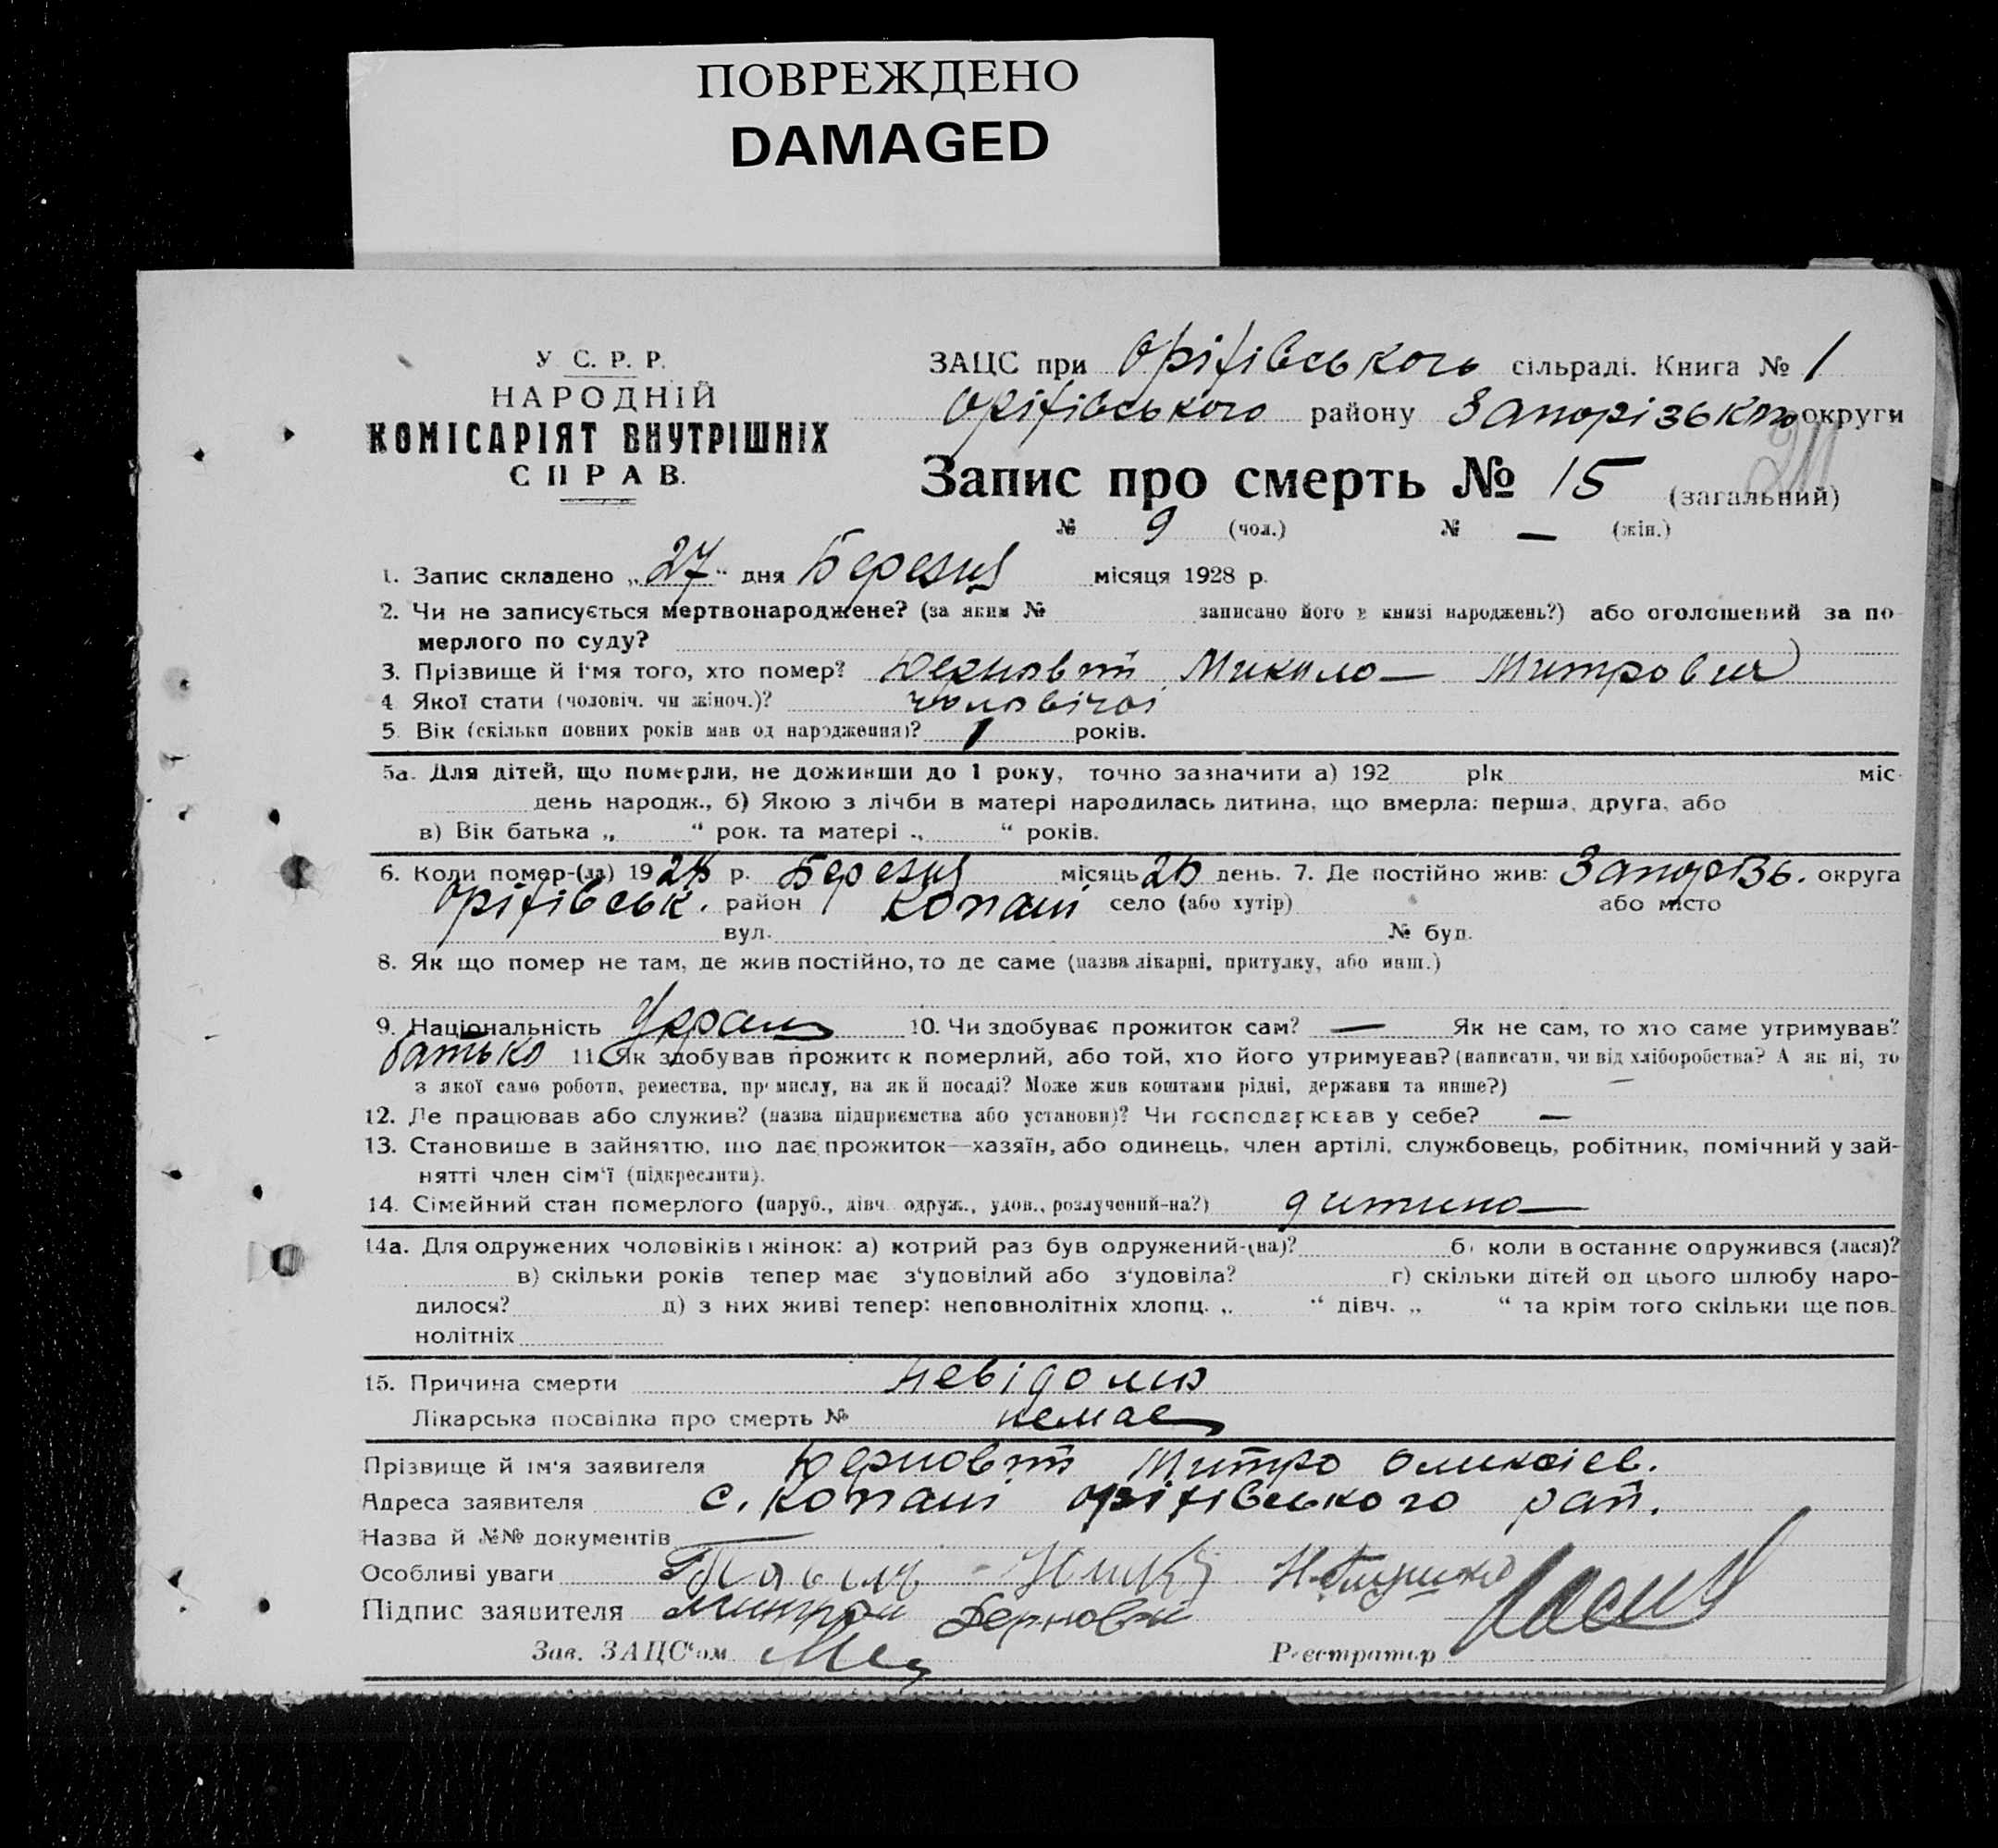 ПОВРЕЖДЕНО
DAMAGED
У С. Р. Р.
НАРОДНІЙ
КОМІСАРІЯТ ВНУТРІШНІХ
СПРАВ.
ЗАЦС при Оріхівського сільраді. Книга № 1
Оріхівського району Запорізької округи
Запис про смерть № 15 (загальний)
№ 9 (чол.) № — (жін.)
1. Запис складено „27“ дня Березня місяця 1928 р.
2. Чи не записується мертвонароджене? (за яким № записано його в книзі народжень?) або оголошений за по-
мерлого по суду?
3. Прізвище й ім'я того, хто помер? Микола Митрович
4 Якої стати (чоловіч. чи жіноч.)? чоловічої
5. Вік (скільки повних років мав од народження)? 1 років.
5а. Для дітей, що померли, не доживши до 1 року, точно зазначити а) 192 рік міс.
день народж., б) Якою з лічби в матері народилась дитина, що вмерла: перша, друга, або
в) Вік батька „ “ рок. та матері „ “ років.
6. Коли помер-(ла) 1928 р. Березня місяць 26 день. 7. Де постійно жив: Запорізь. округа
Оріхівськ. район Копані село (або хутір) або місто
вул. № буд.
8. Як що помер не там, де жив постійно, то де саме (назва лікарні, притулку, або инш.)
9. Національність Україн 10. Чи здобував прожиток сам? — Як не сам, то хто саме утримував?
батько 11. Як здобував прожиток померлий, або той, хто його утримував? (написати, чи від хліборобства? А як ні, то
з якої само роботи, ремества, промислу, на якій посаді? Може жив коштами рідні, держави та инше?) —
12. Де працював або служив? (назва підприємства або установи)? Чи господарював у себе? —
13. Становище в зайняттю, що дає прожиток—хазяїн, або одинець, член артілі, службовець, робітник, помічний у зай-
нятті член сім'ї (підкреслити).
14. Сімейний стан померлого (паруб., дівч. одруж., удов., розлучений-на?) дитина
14а. Для одружених чоловіків і жінок: а) котрий раз був одружений-(на)? б) коли в останнє одружився (лася)?
в) скільки років тепер має з'удовілий або з'удовіла? г) скільки дітей од цього шлюбу наро-
дилося? д) з них живі тепер: неповнолітніх хлопц. „ “ дівч. „ “ та крім того скільки ще пов-
нолітніх
15. Причина смерти невідома
Лікарська посвідка про смерть № немає
Прізвище й ім'я заявителя Митро Олексієв.
Адреса заявителя с. Копані Оріхівського рай.
Назва й №№ документів
Особливі уваги
Підпис заявителя
Зав. ЗАЦС'ом Реєстратор